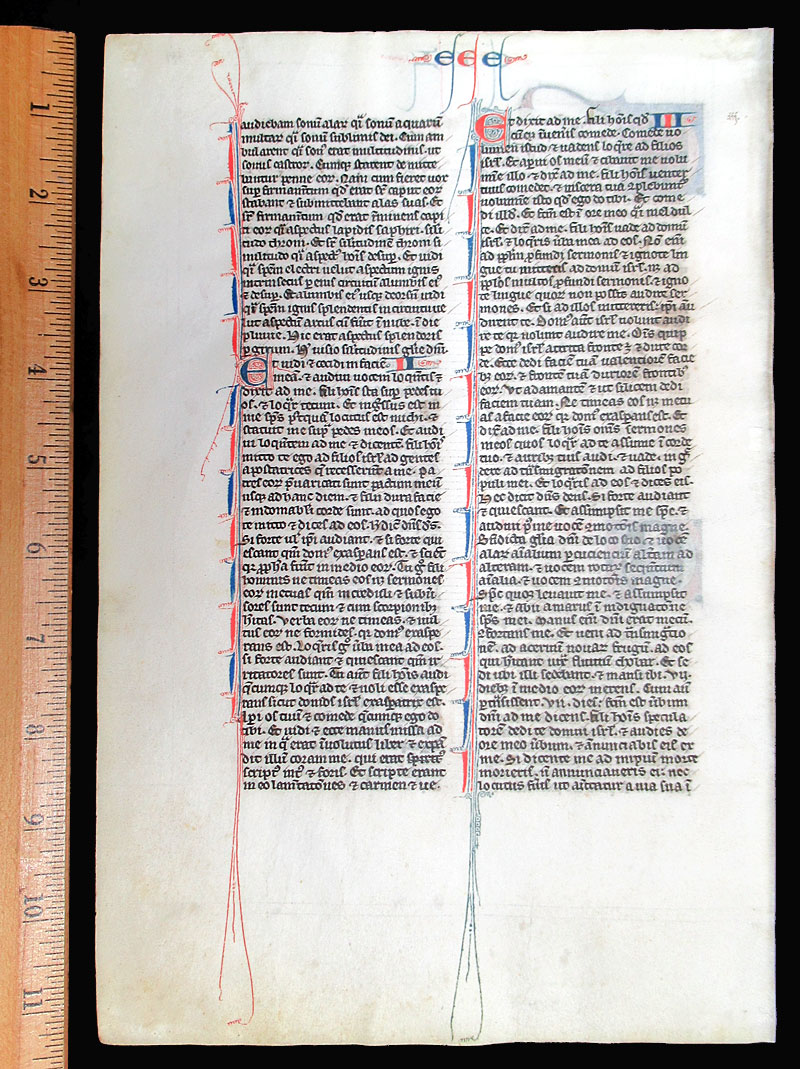 e e e
audiebam sonū alar q̄ sonū aquarū
multar q̄ sonū sublimis dei. Cum am
bularent q̄ son̄ erat multitudinis. ut
sonus castror. Cumq; starent dimitte
bantur penne eor. Nam cum fieret vox
suꝑ firmamtum qd̓ erat sr̄ caput eor
stabant & submittebant alas suas. Et
sr̄ firmamtum qd̓ erat īminens capi
ti eor q̄ aspectus lapidis saphiri. sili
tudo throni. Et sr̄ silitudinē throni si
militudo q̄ aspectꝰ hoīs desuꝑ. Et uidi
q̄ spēm electri uelut aspectum ignis
intrinsecus ꝑ eius circuitū a lumbis eiꝰ
& desuꝑ. Et a lumbis eiꝰ usq; deorsū uidi
q̄ spēm ignis splendentis in circuitu ue
lut aspectū arcus cū fūit ī nube ī die
pluuie. Hic erat aspectus splendoris
ꝑ girum. Hˀ uisio silitudinis glīe dnī.
Et uidi & cecidi in faciem II
meā. & audiui uocem loquentis &
dixit ad me. fili hoīs sta suꝑ pedes tu
os. & loqr̄ tecum. Et ingssus est in
me sps̄ pꝰtquā locutus est michi. &
statuit me suꝑ pedes meos. Et audi
ui loquētem ad me & dicentē. fili hoīs
mitto te ego ad filios isrl̄ ad gentes
apostatrices q̄ recesserūt a me. pa
tres eor p̄uaricati sunt pactum meum
usq; ad hanc diem. & filii dura facie
& indomabili corde sunt. ad quos ego
te mitto & dices ad eos. H̄ dic̄ dn̄s ds̄.
Si forte ul̓ ip̄i audiant. & si forte qui
escant qm̄ dom̓ exasꝑans est. & scient
qr̄ ppha fūit in medio eor. Tu g̓ fili
hominis ne timeas eos nͫ sermones
eor metuas qm̄ increduli & subuͥ
sores sunt tecum & cum scorpionibꝰ
hitas. Verba eor ne timeas. & uul
tus eor ne formides. qr̄ domꝰ exasꝑ
rans est. Loqr̄is g̓ ūba mea ad eos.
si forte audiant & quiescant qm̄ ir
ritatores sunt. Tu aūt fili hoīs audi
q̄cumq; loqr̄ ad te & noli esse exasꝑ
rans sicut domus isrl̄ exasꝑatrix est.
Aꝑi os tuū & comede q̄cumq; ego do
tibi. Et uidi & ecce manus missa ad
me in q̄ erat īuolutus liber & expā
dit illū coram me. qui erat sc̄ptꝰ
scriptꝰ intꝰ & foris. Et scripte erant
in eo lamētatōnes & carmen & ue.
Et dixit ad me. fili hoīs qd̓ III
cūq; īuenīs comede. Comede uo
lumen istud & uadens loq̄re ad filios
isrl̄. Et apui os meū & cibauit me uolu
mīe illo & dix̄ ad me. fili hoīs uenter
tuus comedet. & uiscera tua cplebunt̄
uolumīe isto qd̓ ego do tibi. Et come
di illd̓. Et fcm̄ est ī ore meo q̄ mel dul
ce. Et dix̄ ad me. fili hoīs uade ad domū
isrl̄. & loqr̄is ūba mea ad eos. Nō eīm
ad pplm̄ pfundi sermonis & ignote lin
gue tu mitteris ad domū isrl̄. nͫ ad
pplos multos pfundi sermonis. & igno
te lingue quor non possis audire ser
mones. Et si ad illos mittereris ip̄i au
dirent te. Domꝰ aūt isrl̄ nolunt audi
re te qr̄ nolunt audire me. Om̄s quip
pe domꝰ isrl̄ attrita fronte ē & duro cor
de. Ecce dedi faciē tuā ualentiorē facieͣ
bꝫ eor. & frontē tuā duriorē frontibꝰ
eor. Ut adamantē & ut silicem dedi
faciem tuam. Ne timeas eos nͫ metu
as a facie eor qr̄ domꝰ exasꝑans est. Et
dix̄ ad me. fili hoīs oīms sermones
meos quos loqr̄ ad te assume ī corde
tuo. & auribꝰ tuis audi. & uade. īgre
dere ad tnsmigrationem ad filios po
puli mei. Et loqr̄is ad eos & dices eis.
Hec dicit dn̄s deus. Si forte audiant
& quiescant. Et assumpsit me sp̄c. &
audiui pꝰ me uocē cmotōis magne.
Bn̄dicta glīa dnī de loco suo & uocē
alar aīalium ꝑcuciencium altam ad
alteram. & uocem rotar sequentium
aīalia. & uocem cmotōis magne.
Sp̄c quoq; leuauit me. & assumpsit
me. & abii amarus ī indignatōne
sp̄s mei. Manus eīm dnī erat mecū.
cfortans me. Et ueni ad tnsmigͣtio
nē. ad aceruū nouar frugū. ad eos
qui hitant iux̄ flumē chobar. Et se
di ubi illi sedebant. & mansi ibi. vij.
diebꝰ ī medio eor merens. Cum aūt
ꝑtnsissent. vij. dies. fcm̄ est ūbum
dnī ad me dicens. fili hoīs specula
torē dedi te domui isrl̄. & audies de
ore meo ūbum. & anunciabis eis ex
me. Si dicente me ad impium morte
morieris. n̄ annunciaueris ei. nec
locutus fūis ut auertatur a uia sua ī
1
2
3
4
5
6
7
8
9
10
11